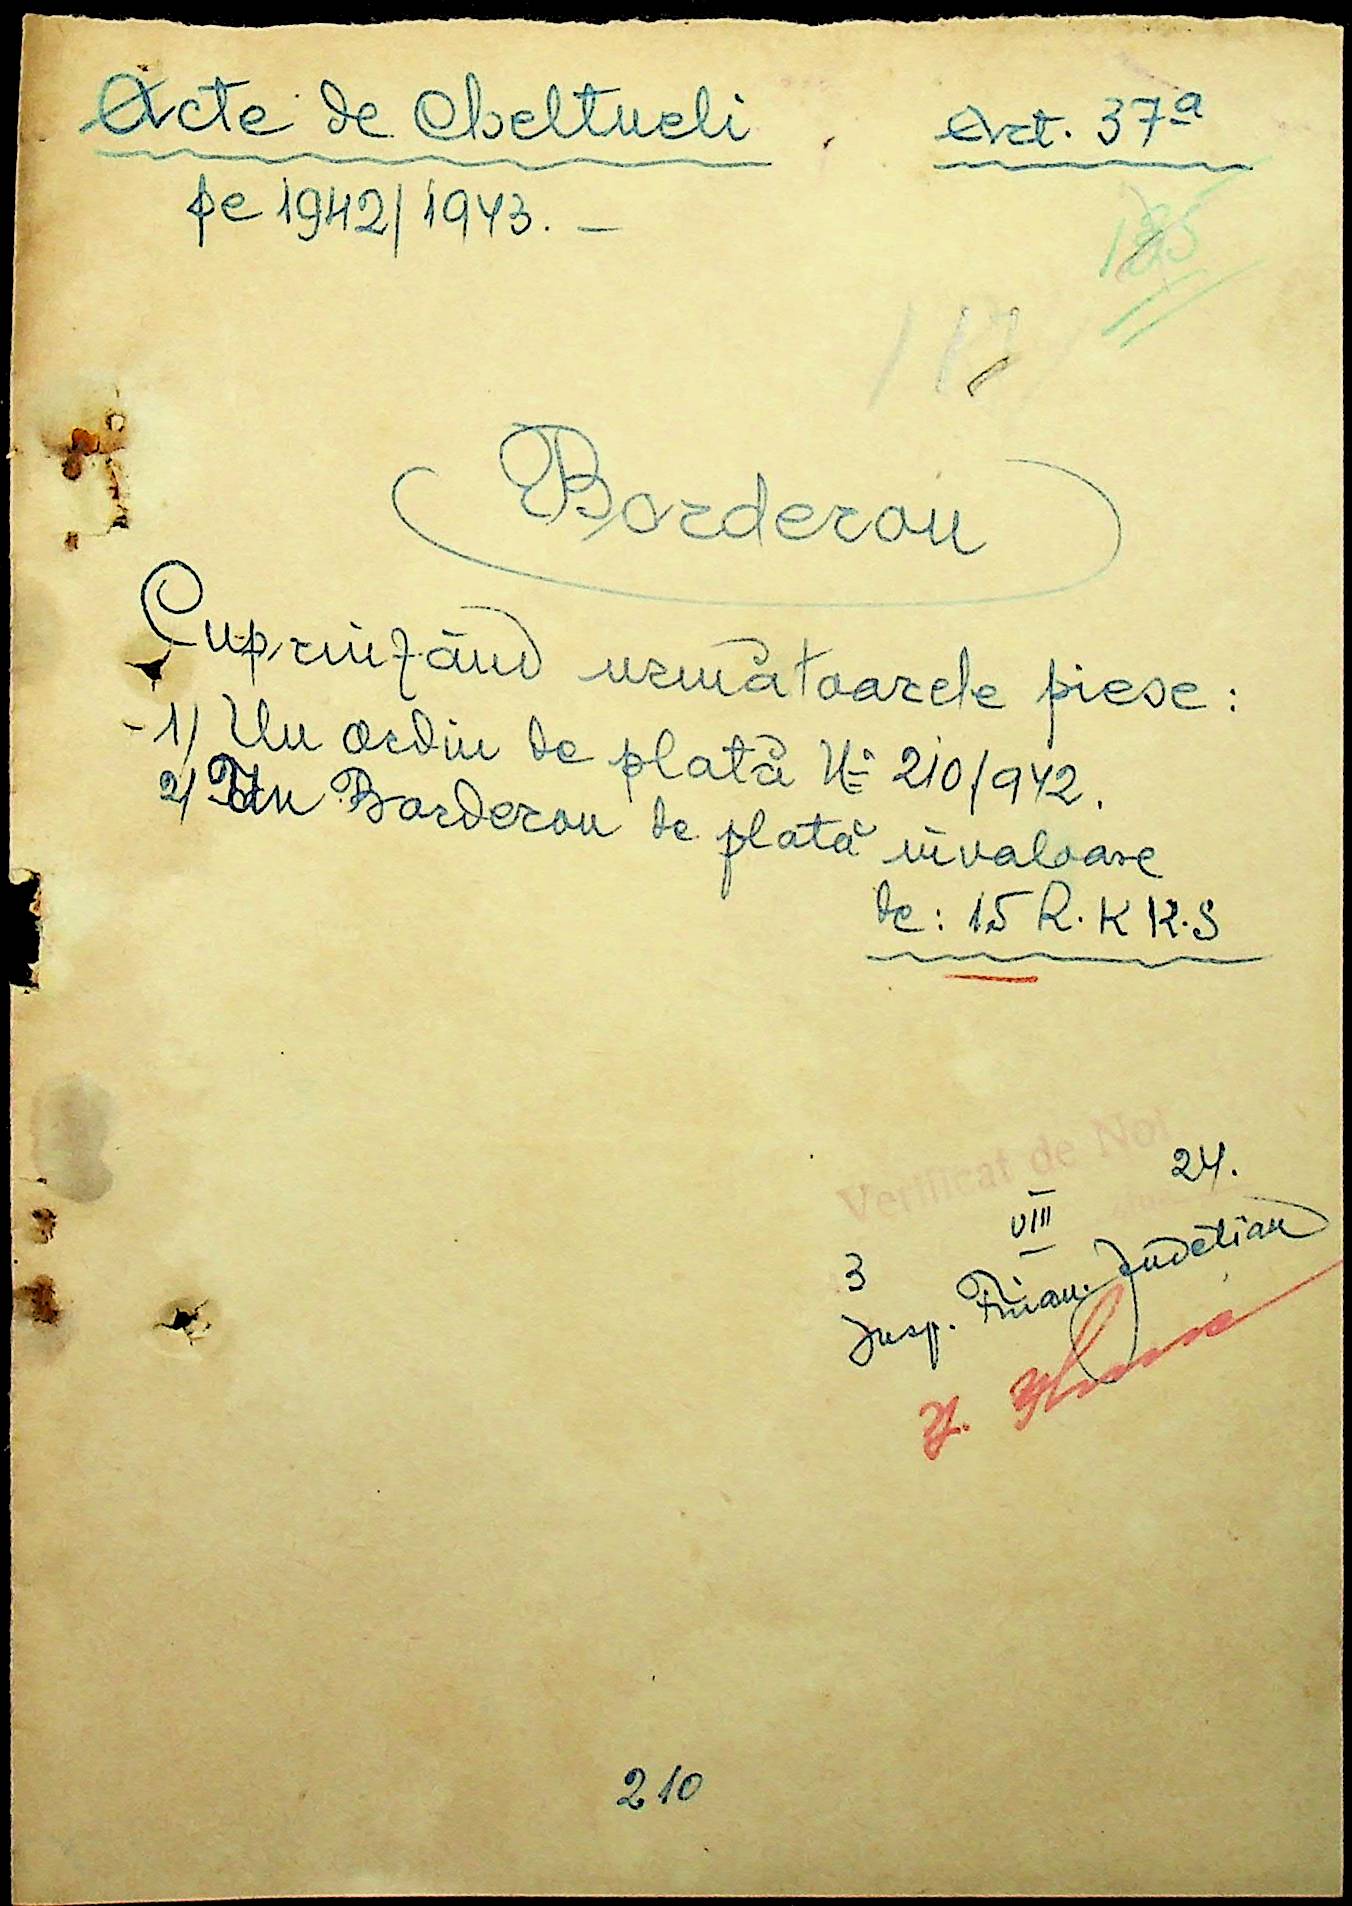 Acte de Cheltueli Art. 37a
pe 1942/1943. —
Borderou
Cuprinzând următoarele piese:
- 1) Un ordin de plată No 210/942.
2) Un Borderou de plată în valoare
de: 15 R.K K.S
Verificat de Noi
24.
VIII
3
Insp. Finan. Județian
210